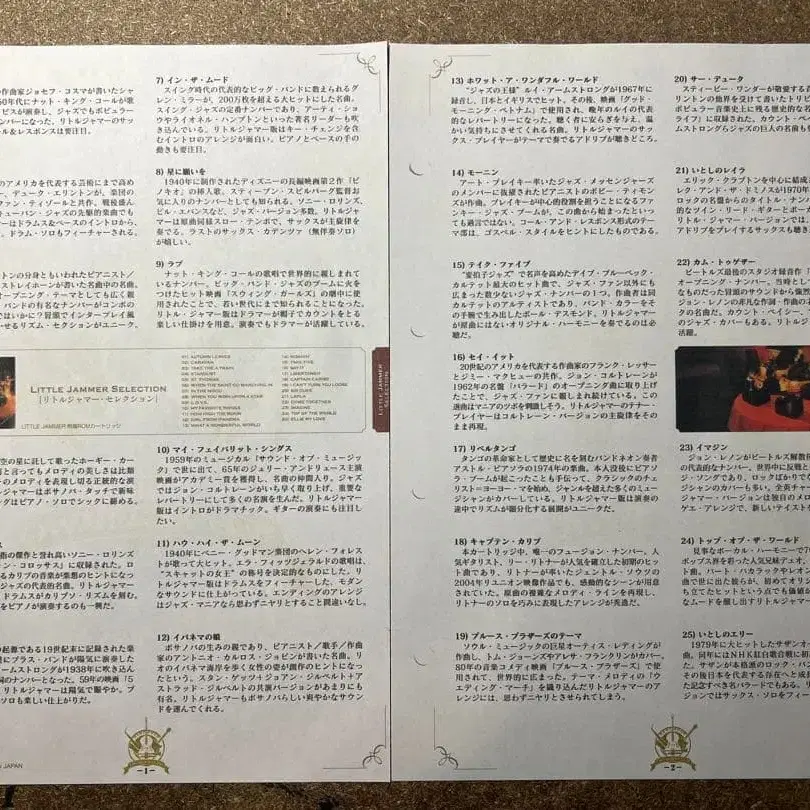 作曲家ジョセフ・コスマが書いたシャ
50年代にナット・キング・コールが歌
ビスが演奏し、ジャズでもポピュラー
ナンバーになった。リトルジャマーのサッ
ル&レスポンスは要注目。
のアメリカを代表する芸術にまで高め
ー、デューク・エリントンが、楽団の
ファン・ティゾールと共作。戦後盛ん
キューバン・ジャズの先駆的楽曲でも
マーはドラムス&ベースのイントロから、
。ドラム・ソロもフィーチャーされる。
トンの分身ともいわれたピアニスト/
ストレイホーンが書いた名曲中の名曲。
オープニング・テーマとしても広く親
バンドの有名なナンバーがコンボの
ではいかに?冒頭でインタープレイ風
せるリズム・セクションがユニーク。
LITTLE JAMMER SELECTION
[リトルジャマー・セレクション]
LITTLE JAMMER 専用ROMカートリッジ
01) AUTUMN LEAVES
02) CARAVAN
03) TAKE THE A TRAIN
04) STARDUST
05) ST. THOMAS
06) WHEN THE SAINTS GO MARCHING IN
07) IN THE MOOD
08) WHEN YOU WISH UPON A STAR
09) L-O-V-E
10) MY FAVORITE THINGS
11) HOW HIGH THE MOON
12) GIRL FROM IPANEMA
13) WHAT A WONDERFUL WORLD
14) MOANIN'
15) TAKE FIVE
16) SAY IT
17) LIBERTANGO
18) CAPTAIN CARIBE
19) CAN'T TURN YOU LOOSE
20) SIR DUKE
21) LAYLA
22) COME TOGETHER
23) IMAGINE
24) TOP OF THE WORLD
25) ELLIE MY LOVE
LITTLE JAMMER
SELECTION
空の星に託して歌ったホーギー・カー
と言ってもメロディの美しさは比類
のメロディを表現し切る正統的な演
ジャマーはボサノバ・タッチで新味
ングはピアノ・ソロでシックに締める。
ス
指の傑作と誉れ高いソニー・ロリンズ
ン・コロッサス」に収録された。ロ
るカリブの音楽が楽想のヒントになっ
ジャズの代表的名曲。リトルジャマー
ドラムスがカリプソ・リズムを刻む。
をピアノが演奏するのも一興だ。
の起源である19世紀末に記録された楽
にブラス・バンドが陽気に演奏した
ームストロングが1938年に吹き込ん
のナンバーとなった。59年の映画「5
。リトルジャマーは陽気で賑やか。ブ
ソロも楽しい仕上がりだ。
JAPAN
7) イン・ザ・ムード
スイング時代の代表的なビッグ・バンドに数えられるグ
レン・ミラーが、200万枚を超える大ヒットにした名曲。
スイング・ジャズの定番ナンバーであり、アーティ・ショ
ウやライオネル・ハンプトンといった著名リーダーも吹
き込んでいる。リトルジャマー版はキー・チェンジを含
むイントロのアレンジが面白い。ピアノとベースの手の
動きも要注目。
8) 星に願いを
1940年に制作されたディズニーの長編映画第2作「ピ
ノキオ」の挿入歌。スティーブン・スピルバーグ監督お
気に入りのナンバーとしても知られる。ソニー・ロリンズ、
ビル・エバンスなど、ジャズ・バージョン多数。リトルジャ
マーは原曲同様スロー・テンポで、サックスが主旋律を
奏でる。ラストのサックス・カデンツァ(無伴奏ソロ)
が嬉しい。
9) ラブ
ナット・キング・コールの歌唱で世界的に親しまれて
いるナンバー。ビッグ・バンド・ジャズのブームに火を
つけたヒット映画「スウィング・ガールズ」の劇中に使
用されたことで、若い世代にまで知られることになった。
リトル・ジャマー版はドラムが帽子でカウントをとる
楽しい仕掛けを用意。演奏でもドラマーが活躍している。
10) マイ・フェイバリット・シングス
1959年のミュージカル「サウンド・オブ・ミュージッ
ク」で世に出て、65年のジュリー・アンドリュース主演
映画がアカデミー賞を獲得し、名曲の仲間入り。ジャズ
ではジョン・コルトレーンがいち早く取り上げ、重要な
レパートリーにして多くの名演を生んだ。リトルジャマー
版はイントロがドラマチック。ギターの演奏にも注目し
たい。
11) ハウ・ハイ・ザ・ムーン
1940年にベニー・グッドマン楽団のヘレン・フォレス
トが歌って大ヒット。エラ・フィッツジェラルドの歌唱は、
“スキャットの女王”の称号を決定的なものにした。リ
トルジャマー版はドラムスをフィーチャーした、モダン
なサウンドに仕上がっている。エンディングのアレンジ
はジャズ・マニアなら思わずニヤリとすること間違いなし。
12) イパネマの娘
ボサノバの生みの親であり、ピアニスト/歌手/作曲
家のアントニオ・カルロス・ジョビンが書いた名曲。リ
オのイパネマ海岸を歩く女性の姿が創作のヒントになっ
たという。スタン・ゲッツ+ジョアン・ジルベルト+ア
ストラッド・ジルベルトの共演バージョンがあまりにも
有名。リトルジャマーもボサノバらしい爽やかなサウン
ドを運んでくれる。
-1-
13) ホワット・ア・ワンダフル・ワールド
“ジャズの王様”ルイ・アームストロングが1967年に
録音し、日本とイギリスでヒット。その後、映画「グッド・
モーニング・ベトナム」で使用され、晩年のルイの代表
的なレパートリーになった。聴く者に安らぎを与え、温
かい気持ちにさせてくれる名曲。リトルジャマーのサッ
クス・プレイヤーがテーマで奏でるアドリブが聴きもの。
14) モーニン
アート・ブレイキー率いたジャズ・メッセンジャーズ
のメンバーに抜擢されたピアニストのボビー・ティモン
ズが作曲。ブレイキーが中心的役割を担うことになるファ
ンキー・ジャズ・ブームが、この曲から始まったといっ
ても過言ではない。コール・アンド・レスポンス形式のテー
マ部は、ゴスペル・スタイルをヒントにしたものである。
15) テイク・ファイブ
“変拍子ジャズ”で名声を高めたデイブ・ブルーベック・
カルテット最大のヒット曲で、ジャズ・ファン以外にも
広まった数少ないジャズ・ナンバーの1つ。作者は同
カルテットのアルティストであり、バンド・カラーをそ
の手腕で生み出したポール・デスモンド。リトルジャマー
が原曲にはないオリジナル・ハーモニーを奏でるのは必
聴だ。
16) セイ・イット
20世紀のアメリカを代表する作曲家のフランク・レッサー
とジミー・マクヒューの共作。ジョン・コルトレーンが
1962年の名盤「バラード」のオープニング曲に取り上げ
たことで、ジャズ・ファンに親しまれ続けている。この
選曲はマニアのツボを刺激しそう。リトルジャマーのテナー・
プレイヤーはコルトレーン・バージョンの主旋律をその
まま再現。
17) リベルタンゴ
タンゴの革命家として歴史に名を刻むバンドネオン奏者
アストル・ピアソラの1974年の楽曲。本人没後にピアソ
ラ・ブームが起こったことも手伝って、クラシックのチェ
リスト=ヨーヨー・マを始め、ジャンルを超えた多くのミュー
ジシャンがカバーしている。リトルジャマー版は演奏の
途中でリズムが細分化する展開がユニークだ。
18) キャプテン・カリブ
本カートリッジ中、唯一のフュージョン・ナンバー。人
気ギタリスト、リー・リトナーが人気を確立した初期のヒッ
ト曲であり、リトナーが率いたジェントル・ソウツの
2004年リユニオン映像作品でも、感動的なシーンが用意
されていた。原曲の複雑なメロディ・ラインを再現し、
リトナーのソロを巧みに表現したアレンジが秀逸だ。
19) ブルース・ブラザーズのテーマ
ソウル・ミュージックの巨星オーティス・レディングが
作曲し、トム・ジョーンズやアレサ・フランクリンがカバー。
80年の音楽コメディ映画「ブルース・ブラザーズ」で使
用されて、世界的に広まった。テーマ・メロディの「ウ
エディング・マーチ」を織り込んだリトルジャマーのア
レンジには、思わずニヤリとさせられてしまう。
20) サー・デューク
スティービー・ワンダーが敬愛する音
リントンの他界を受けて書いたトリビ
ポピュラー音楽史上に残る歴史的な名
ライフ」に収録された。カウント・ベ
ームストロングらジャズの巨人の名前も
21) いとしのレイラ
エリック・クラプトンを中心に結成さ
レク・アンド・ザ・ドミノスが1970年
ロックの名盤からのタイトル・ナンバ
的なツイン・リード・ギターとボーカ
リトル・ジャマー・バージョンでは、
アドリブをプレイするサックスも聴き
22) カム・トゥゲザー
ビートルズ最後のスタジオ録音作「
オープニング・ナンバー。当時として
なものだった冒頭のサウンドから強烈
ジョン・レノンの非凡な作詞・作曲の
クの名曲だ。カウント・ベイシー、マ
のジャズ・カバーもある。リトルジャ
活躍。
23) イマジン
ジョン・レノンがビートルズ解散後
の代表的なナンバー。世界中に反戦と
ジ・ソングであり、ロックばかりでな
ジシャンのカバーも多い。全英チャー
ジャマー・バージョンは独自のメロ
ゲエ・アレンジで、新しいテイストを
24) トップ・オブ・ザ・ワールド
見事なボーカル・ハーモニーで70
ポップス界を彩った人気兄妹デュオ、
ト曲。バート・バカラックやレオン
曲で世に出た彼らが、初めてオリジ
ち立てたヒットという点でも価値が
なムードを醸し出すリトルジャマー
25) いとしのエリー
1979年に大ヒットしたサザンオー
曲。同年にはNHK紅白歌合戦に初
た。サザンが本格派のロック・バン
その後日本を代表する存在へと成長
た記念すべき名バラードでもある。リ
ジョンではサックス・ソロをフィー
-2-